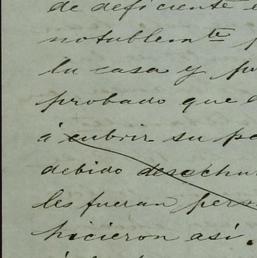 de deficiente
notablemte
la casa y
probado que
á cubrir su
debido desechar
les fueran pers
hicieron así.